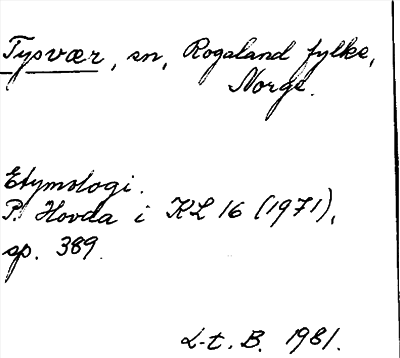 Tysvær, sn, Rogaland fylke,
Norge.
Etymologi.
P. Hovda i KL 16 (1971),
sp. 389.
L-t. B. 1981.